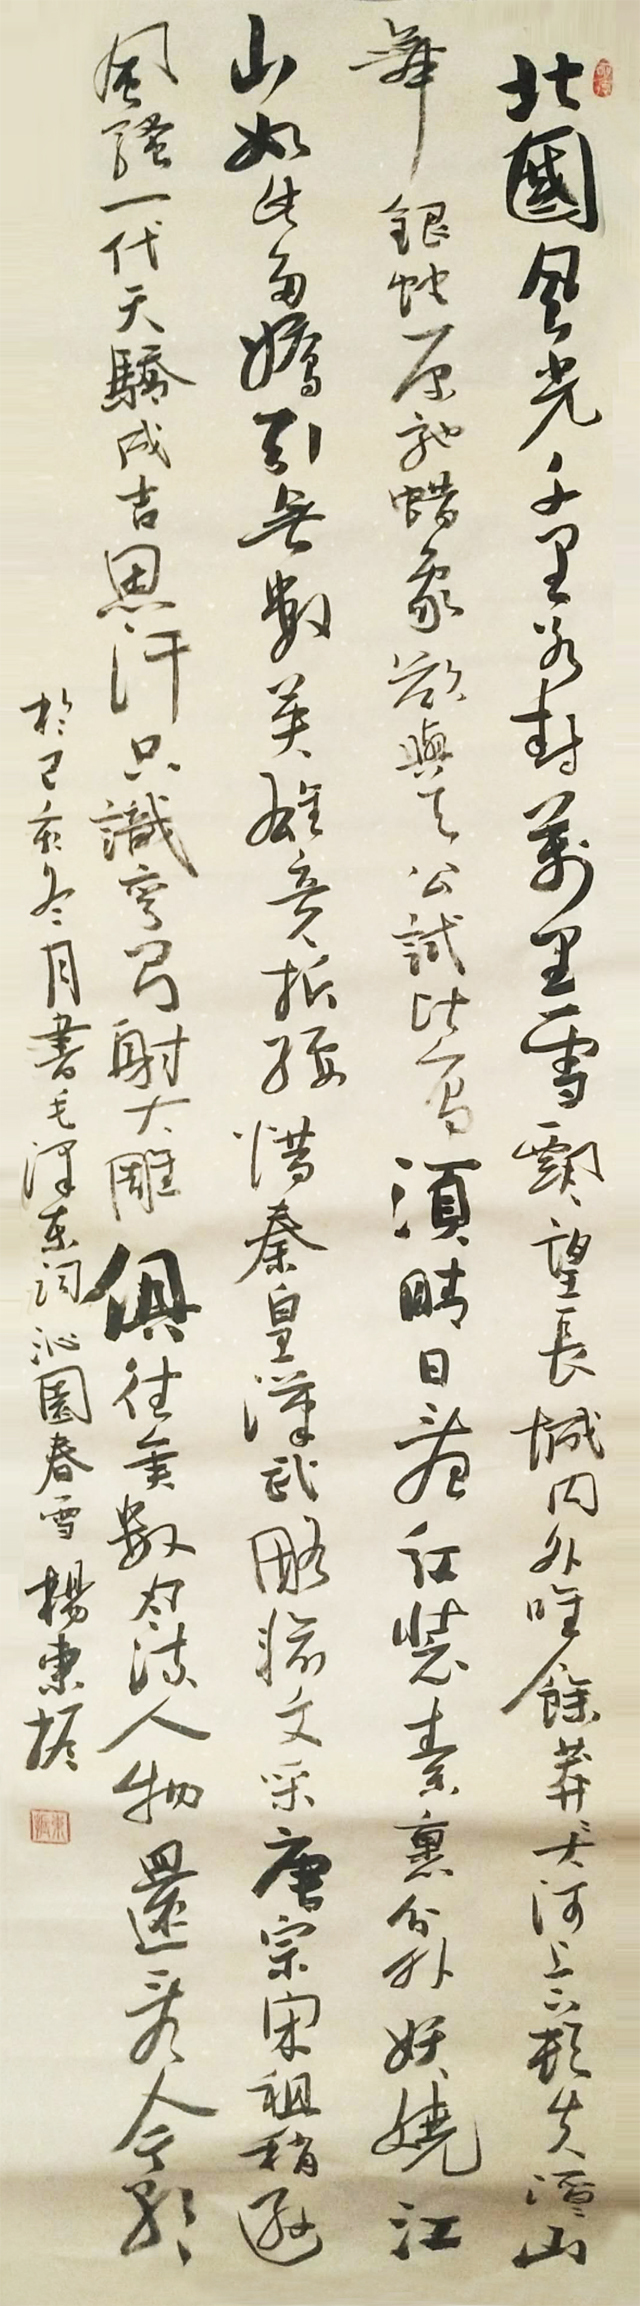 北國風光千里冰封萬里雪飄望長城內外唯餘莽〻大河上下頓失滔〻山
舞銀蛇原馳蜡象欲與天公試比高須晴日看紅裝素裹分外妖嬈江
山如此多嬌引無數英雄競折腰惜秦皇漢武略輸文采唐宗宋祖稍遜
風騷一代天驕成吉思汗只識彎弓射大雕俱往矣數風流人物還看今朝
於己亥冬月書毛澤東詞沁園春雪 楊東